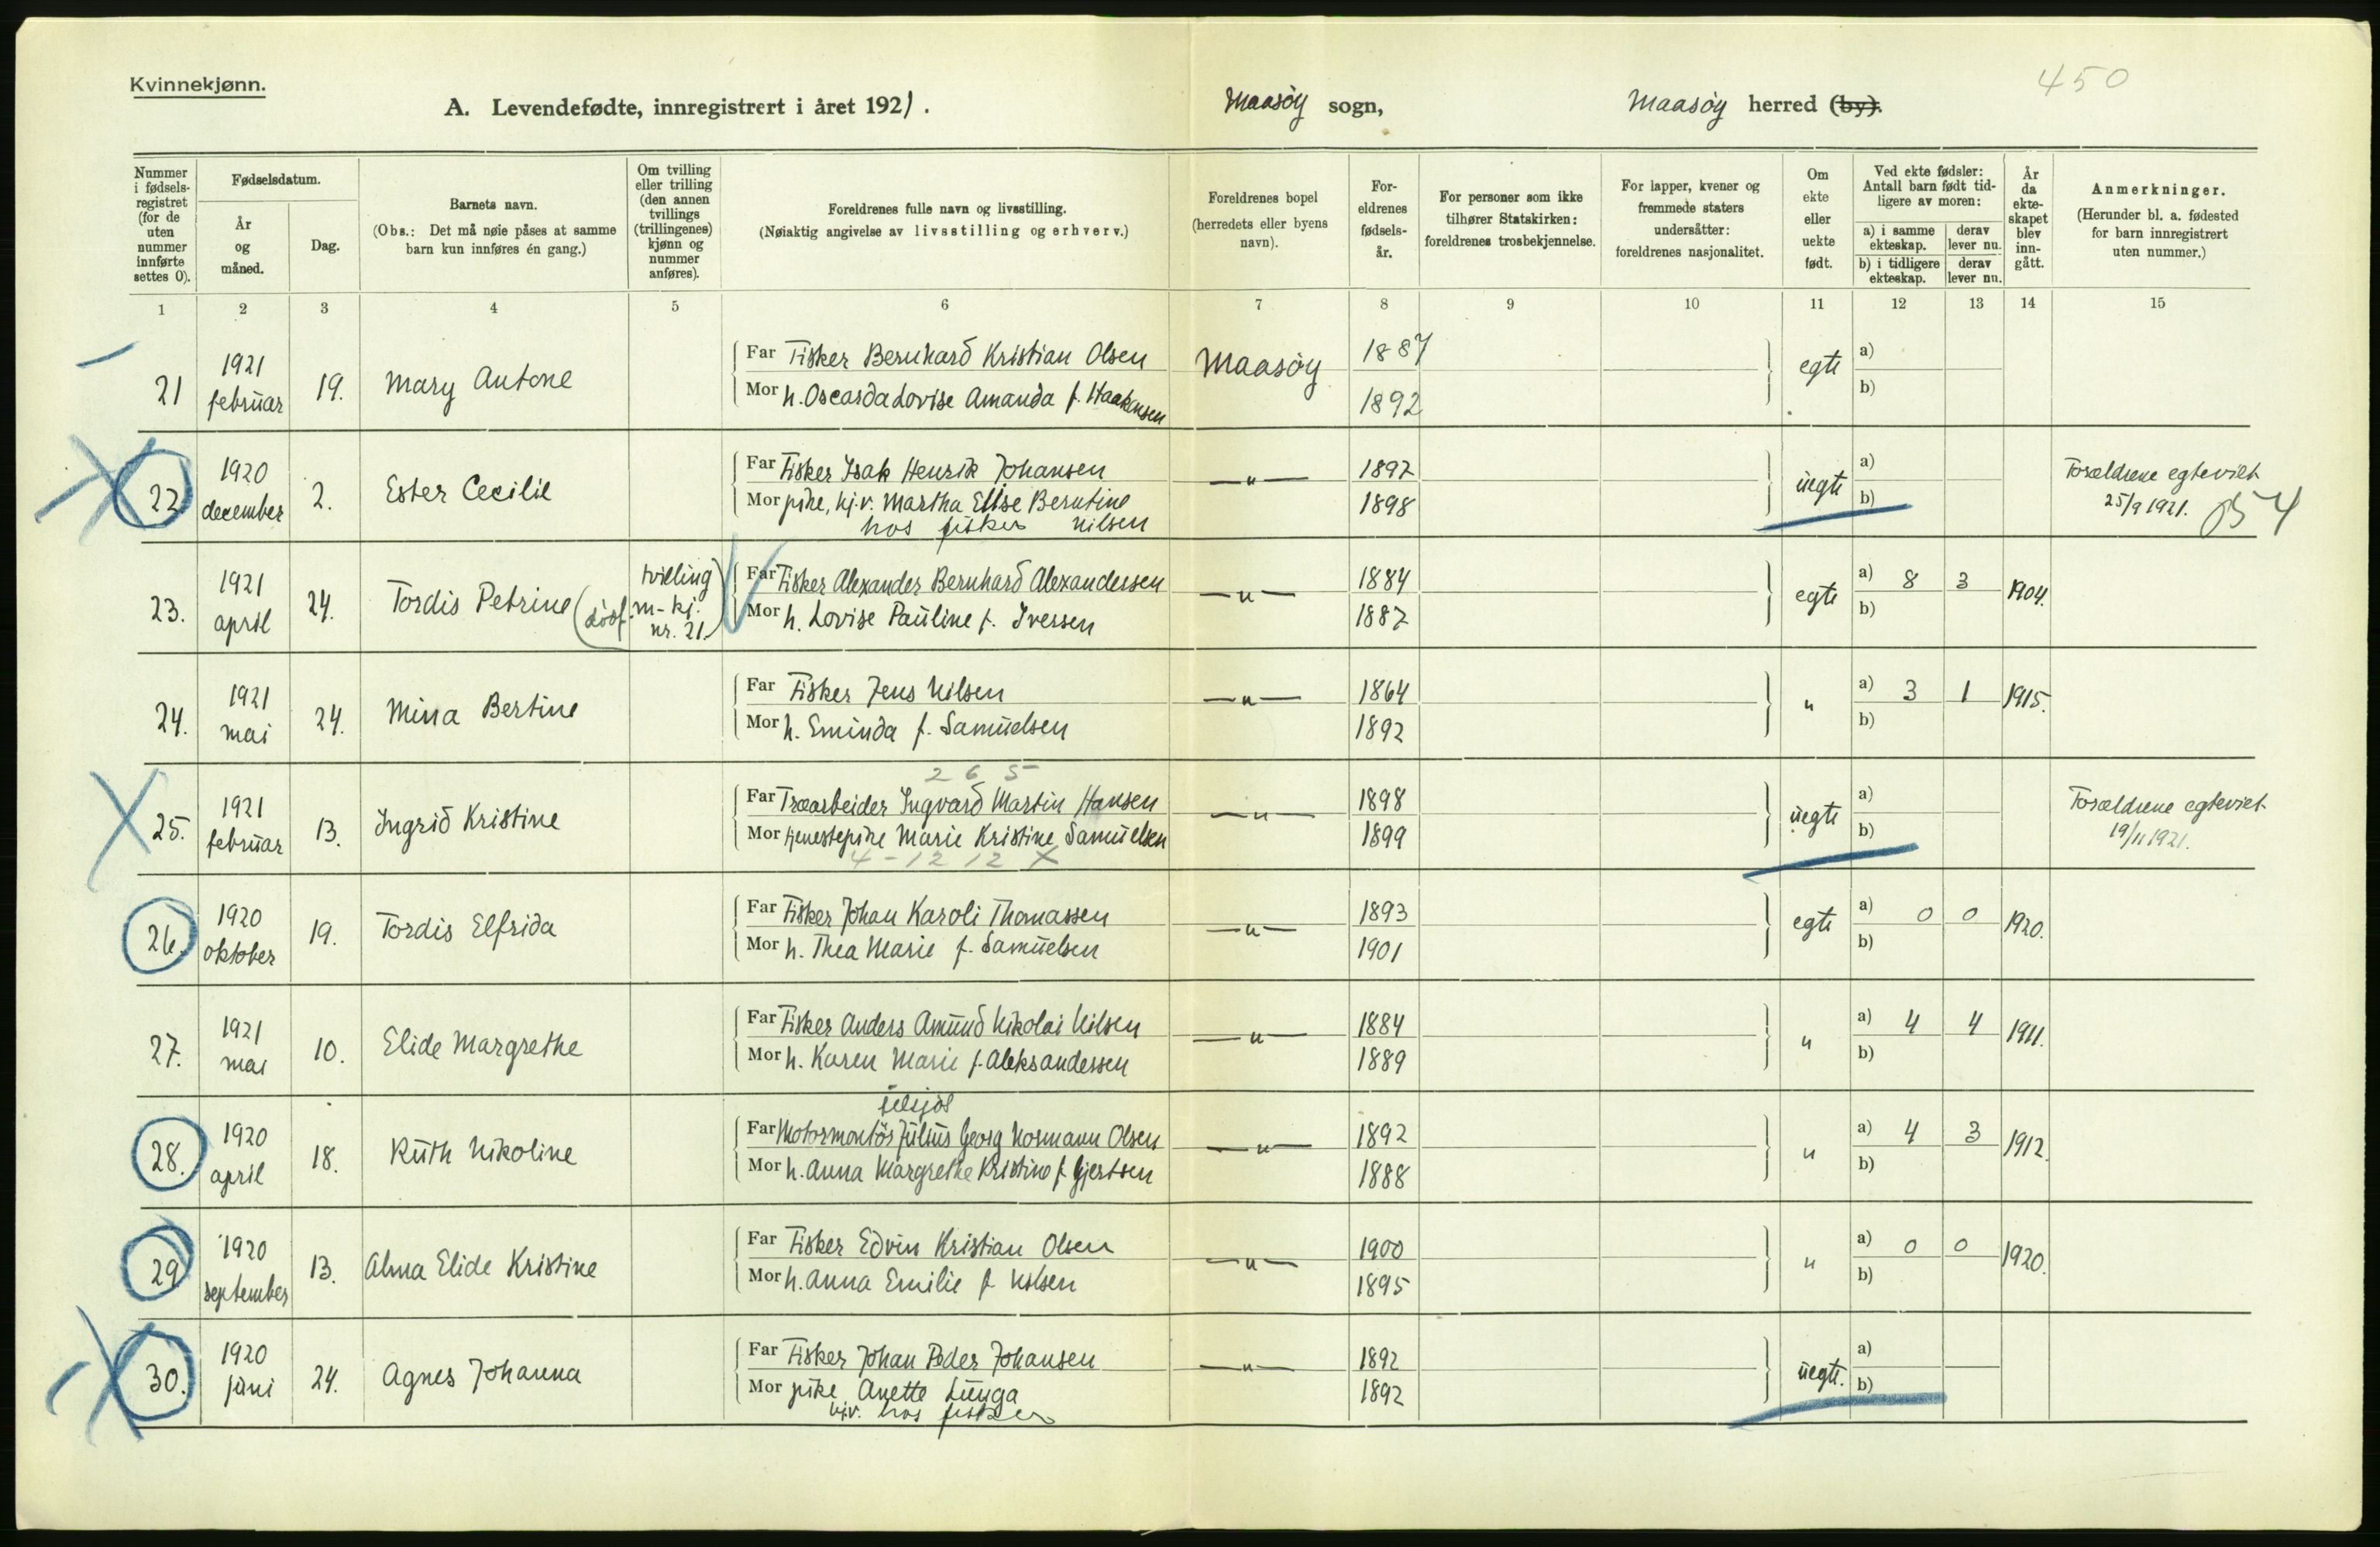 Kvinnekjønn.
450
A. Levendefødte, innregistrert i året 1921. Maasöy sogn, Maasöy herred (by).
Nummer i fødselsregistret (for de uten nummer innførte settes 0).
Fødselsdatum.
År og måned.
Dag.
Barnets navn.
(Obs.: Det må nøie påses at samme barn kun innføres én gang.)
Om tvilling eller trilling (den annen tvillings (trillingenes) kjønn og nummer anføres).
Foreldrenes fulle navn og livsstilling.
(Nøiaktig angivelse av livsstilling og erhverv.)
Foreldrenes bopel (herredets eller byens navn).
Foreldrenes fødselsår.
For personer som ikke tilhører Statskirken: foreldrenes trosbekjennelse.
For lapper, kvener og fremmede staters undersåtter: foreldrenes nasjonalitet.
Om ekte eller uekte født.
Ved ekte fødsler: Antall barn født tidligere av moren:
a) i samme ekteskap. derav lever nu.
b) i tidligere ekteskap. derav lever nu.
År da ekteskapet blev inngått.
Anmerkninger.
(Herunder bl. a. fødested for barn innregistrert uten nummer.)
1 2 3 4 5 6 7 8 9 10 11 12 13 14 15
21 1921 februar 19. Mary Antone Far Fisker Bernhard Kristian Olsen Maasöy 1887 egte a)
Mor h. Oscarda Lovise Amanda f. Haakensen 1892 b)
22 1920 december 2. Ester Cecilie Far Fisker Isak Henrik Johansen —"— 1897 uegte a) Forældrene egteviet 25/9 1921.
Mor pike, hj.v. Martha Elise Berntine Nilsen 1898 b)
hos fisker
23. 1921 april 24. Tordis Petrine (dödf. tvilling m-kj. nr. 21.) Far Fisker Alexander Bernhard Alexandersen —"— 1884 egte a) 8 3 1904.
Mor h. Lovise Pauline f. Iversen 1887 b)
24. 1921 mai 24. Mina Bertine Far Fisker Jens Nilsen —"— 1864 " a) 3 1 1915.
Mor h. Eminda f. Samuelsen 1892 b)
265
25. 1921 februar 13. Ingrid Kristine Far Træarbeider Ingvard Martin Hansen —"— 1898 uegte a) Forældrene egteviet 19/11 1921.
Mor tjenestepike Marie Kristine Samuelsen 1899 b)
4-12 12 X
26. 1920 oktober 19. Tordis Elfrida Far Fisker Johan Karoli Thomassen —"— 1893 egte a) 0 0 1920.
Mor h. Thea Marie f. Samuelsen 1901 b)
27. 1921 mai 10. Elide Margrethe Far Fisker Anders Amund Nikolai Nilsen —"— 1884 " a) 4 4 1911.
Mor h. Karen Marie f. Aleksandersen 1889 b)
28. 1920 april 18. Ruth Nikoline Far Motormontör Julius Georg Normann Olsen —"— 1892 " a) 4 3 1912.
Mor h. Anna Margrethe Kristine f. Gjertsen 1888 b)
29 1920 september 13. Alma Elide Kristine Far Fisker Edvin Kristian Olsen —"— 1900 " a) 0 0 1920.
Mor h. Anna Emilie f. Nilsen 1895 b)
30. 1920 juni 24. Agnes Johanna Far Fisker Johan Peder Johansen —"— 1892 uegte. a)
Mor pike Anette Lunga 1892 b)
hj.v. hos fisker